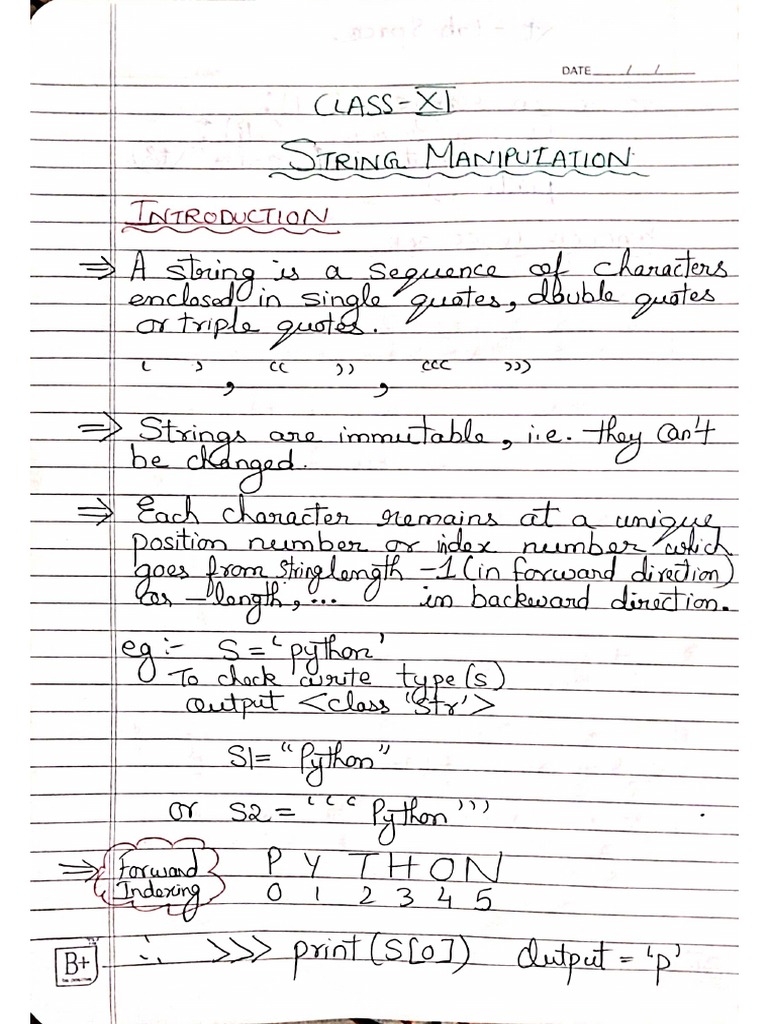 DATE / /
CLASS-XI
STRING MANIPULATION
INTRODUCTION
⇒ A string is a sequence of characters
enclosed in single quotes, double quotes
or triple quotes.
‘ ’ , “ ” , ‘‘‘ ’’’
⇒ Strings are immutable, i.e. they can't
be changed.
⇒ Each character remains at a unique
position number or index number which
goes from string length -1 (in forward direction)
or -length, ... in backward direction.
eg:- S = 'python'
To check write type(s)
output <class 'str'>
S1 = "Python"
or S2 = '''Python'''
⇒ Forward
Indexing
P Y T H O N
0 1 2 3 4 5
∴ >>> print(S[0]) Output = 'p'
B+